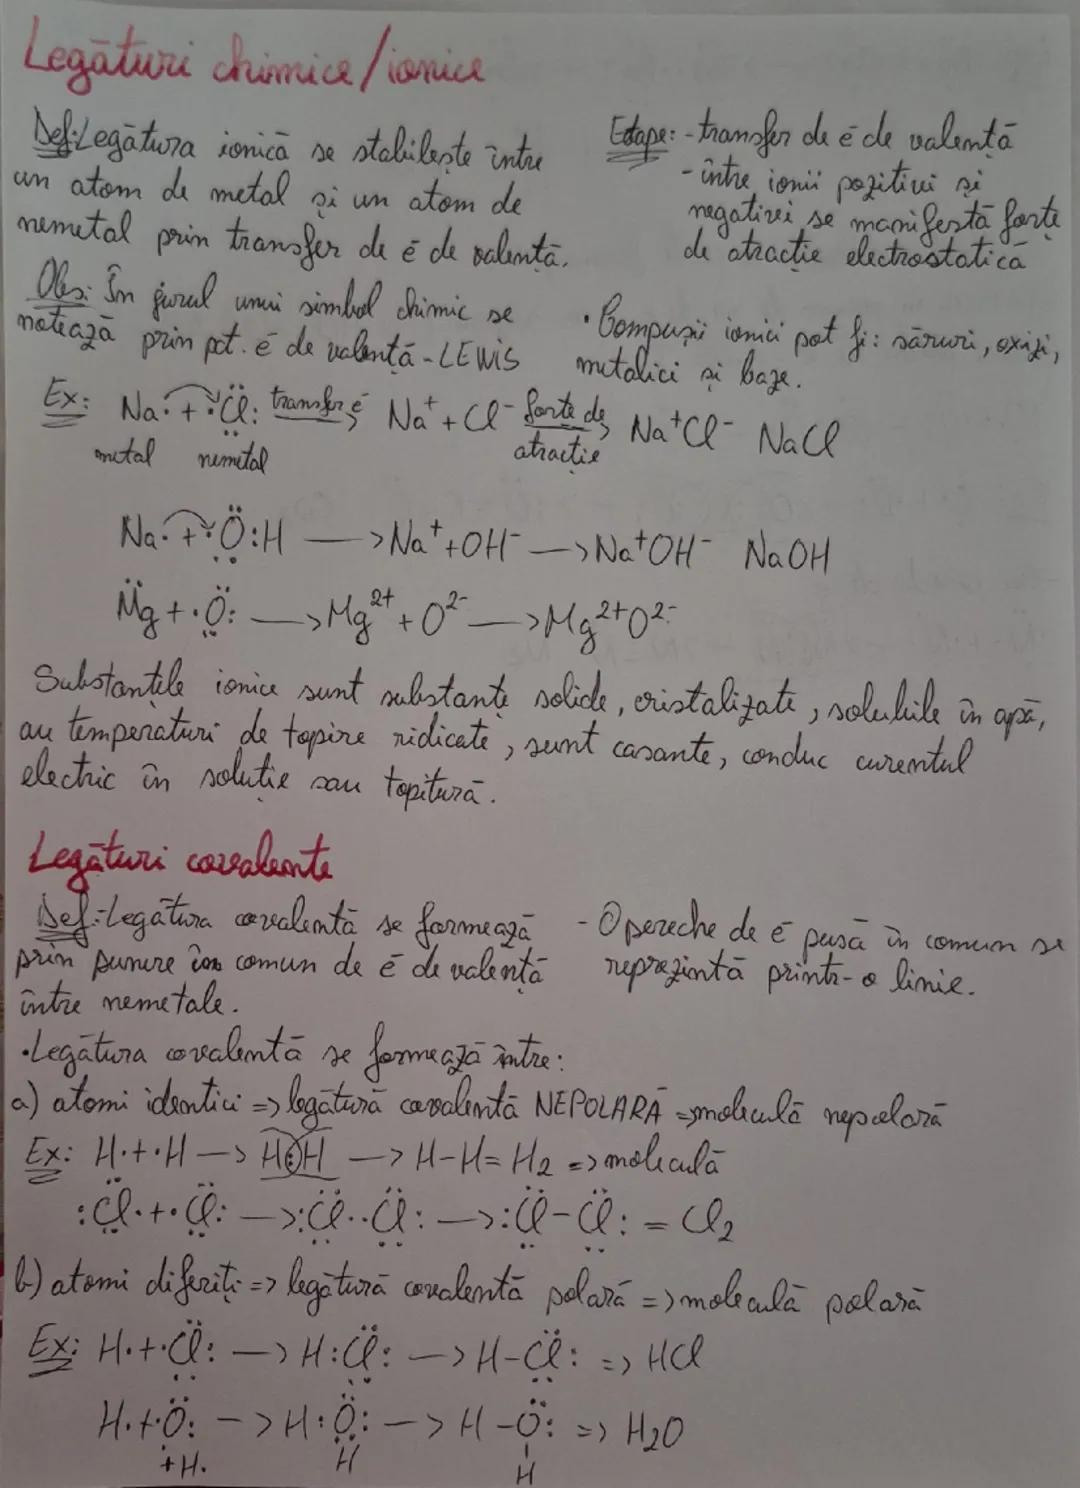 Legături chimice/ionice
Def: Legătura ionică se stabilește între
un atom de metal și un atom de
nemetal prin transfer de ē de valență.
Obs: În jurul unui simbol chimic se
notează prin pct. ē de valență - LEWIS
Etape: - transfer de ē de valență
- între ionii pozitivi și
negativi se manifestă forțe
de atracție electrostatică
• Compușii ionici pot fi: săruri, oxizi,
metalici și baze.
Ex: Na· + :C̈l: transfer ē Na⁺ + Cl⁻ forțe de Na⁺Cl⁻ NaCl
metal nemetal atracție
Na· + ·Ö:H —> Na⁺ + OH⁻ —> Na⁺OH⁻ NaOH
M̈g + ·Ö: —> Mg²⁺ + O²⁻ —> Mg²⁺O²⁻
Substanțele ionice sunt substanțe solide, cristalizate, solubile în apă,
au temperaturi de topire ridicate, sunt casante, conduc curentul
electric în soluție sau topitură.
Legături covalente
Def: Legătura covalentă se formează
prin punere în comun de ē de valență
între nemetale.
- O pereche de ē pusă în comun se
reprezintă printr-o linie.
• Legătura covalentă se formează între:
a) atomi identici => legătură covalentă NEPOLARĂ => moleculă nepolară
Ex: H· + ·H —> H:H —> H-H = H₂ => moleculă
:C̈l· + ·C̈l: —> :C̈l··C̈l: —> :C̈l-C̈l: = Cl₂
b) atomi diferiți => legătură covalentă polară => moleculă polară
Ex: H· + ·C̈l: —> H:C̈l: —> H-C̈l: => HCl
H· + ·Ö: —> H:Ö: —> H-Ö: => H₂O
+H. H H